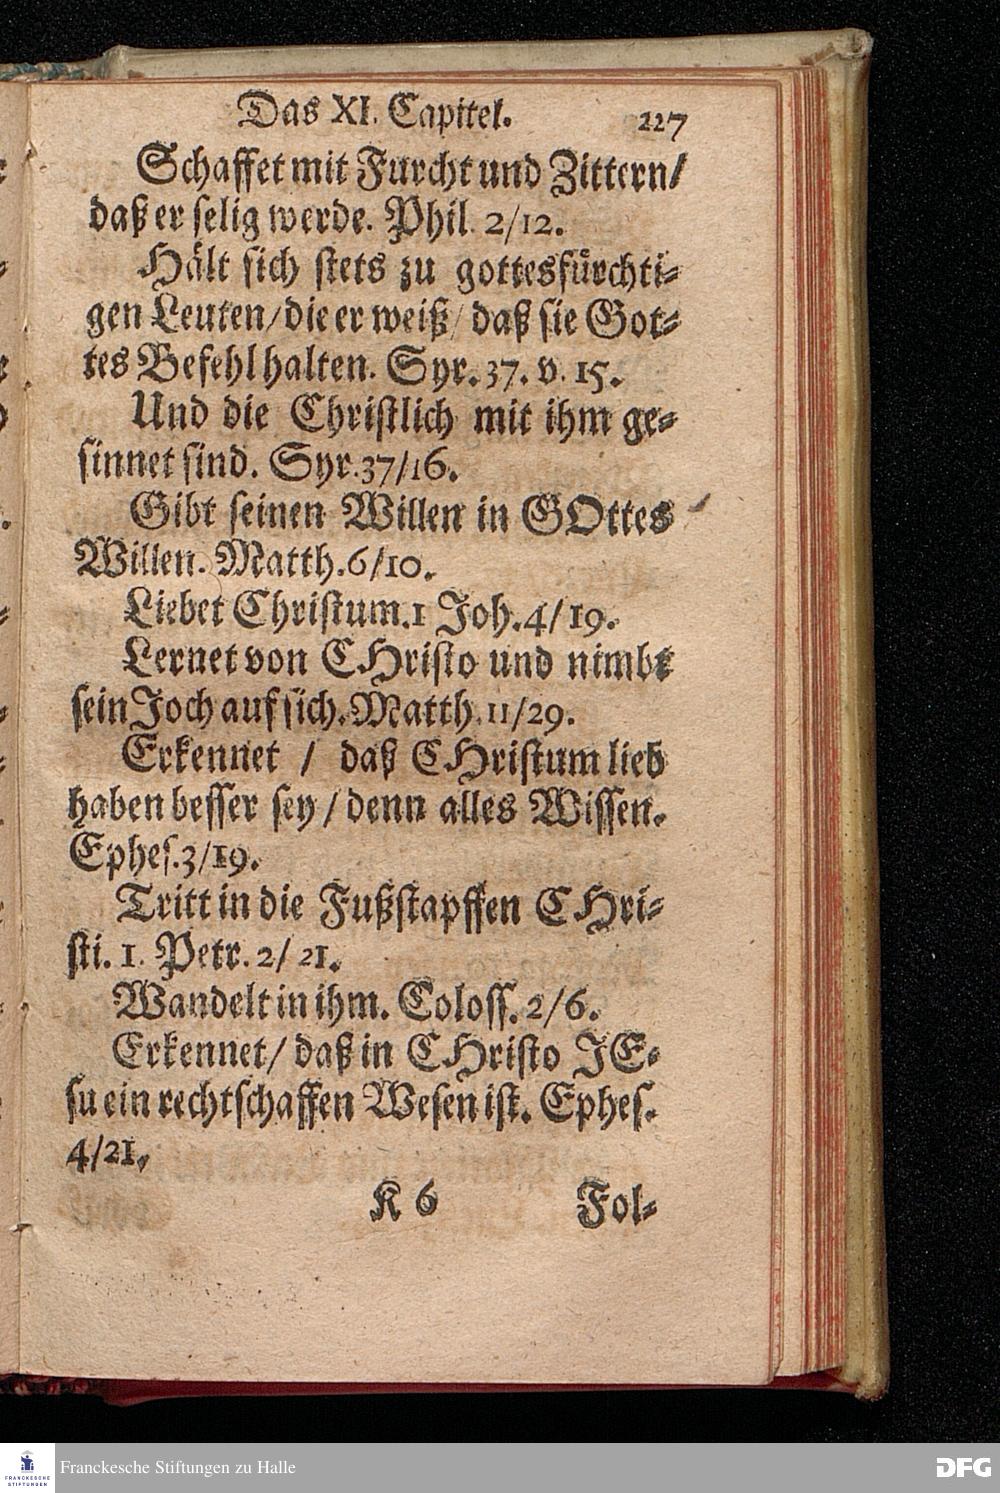 Das XI. Capitel. 227
Schaffet mit Furcht und Zittern/
daß er selig werde. Phil. 2/12.
Hält sich stets zu gottesfürchti-
gen Leuten/die er weiß/ daß sie Got-
tes Befehl halten. Syr. 37. v. 15.
Und die Christlich mit ihm ge-
sinnet sind. Syr. 37/16.
Gibt seinen Willen in GOttes
Willen. Matth. 6/10.
Liebet Christum. 1 Joh. 4/19.
Lernet von CHristo und nimbt
sein Joch auf sich. Matth. 11/29.
Erkennet / daß CHristum lieb
haben besser sey / denn alles Wissen.
Ephes. 3/19.
Tritt in die Fußstapffen CHri-
sti. 1. Petr. 2/ 21.
Wandelt in ihm. Coloss. 2/6.
Erkennet/ daß in CHristo JE-
su ein rechtschaffen Wesen ist. Ephes.
4/21.
K 6 Fol-
FRANCKESCHE
STIFTUNGEN
Franckesche Stiftungen zu Halle
DFG